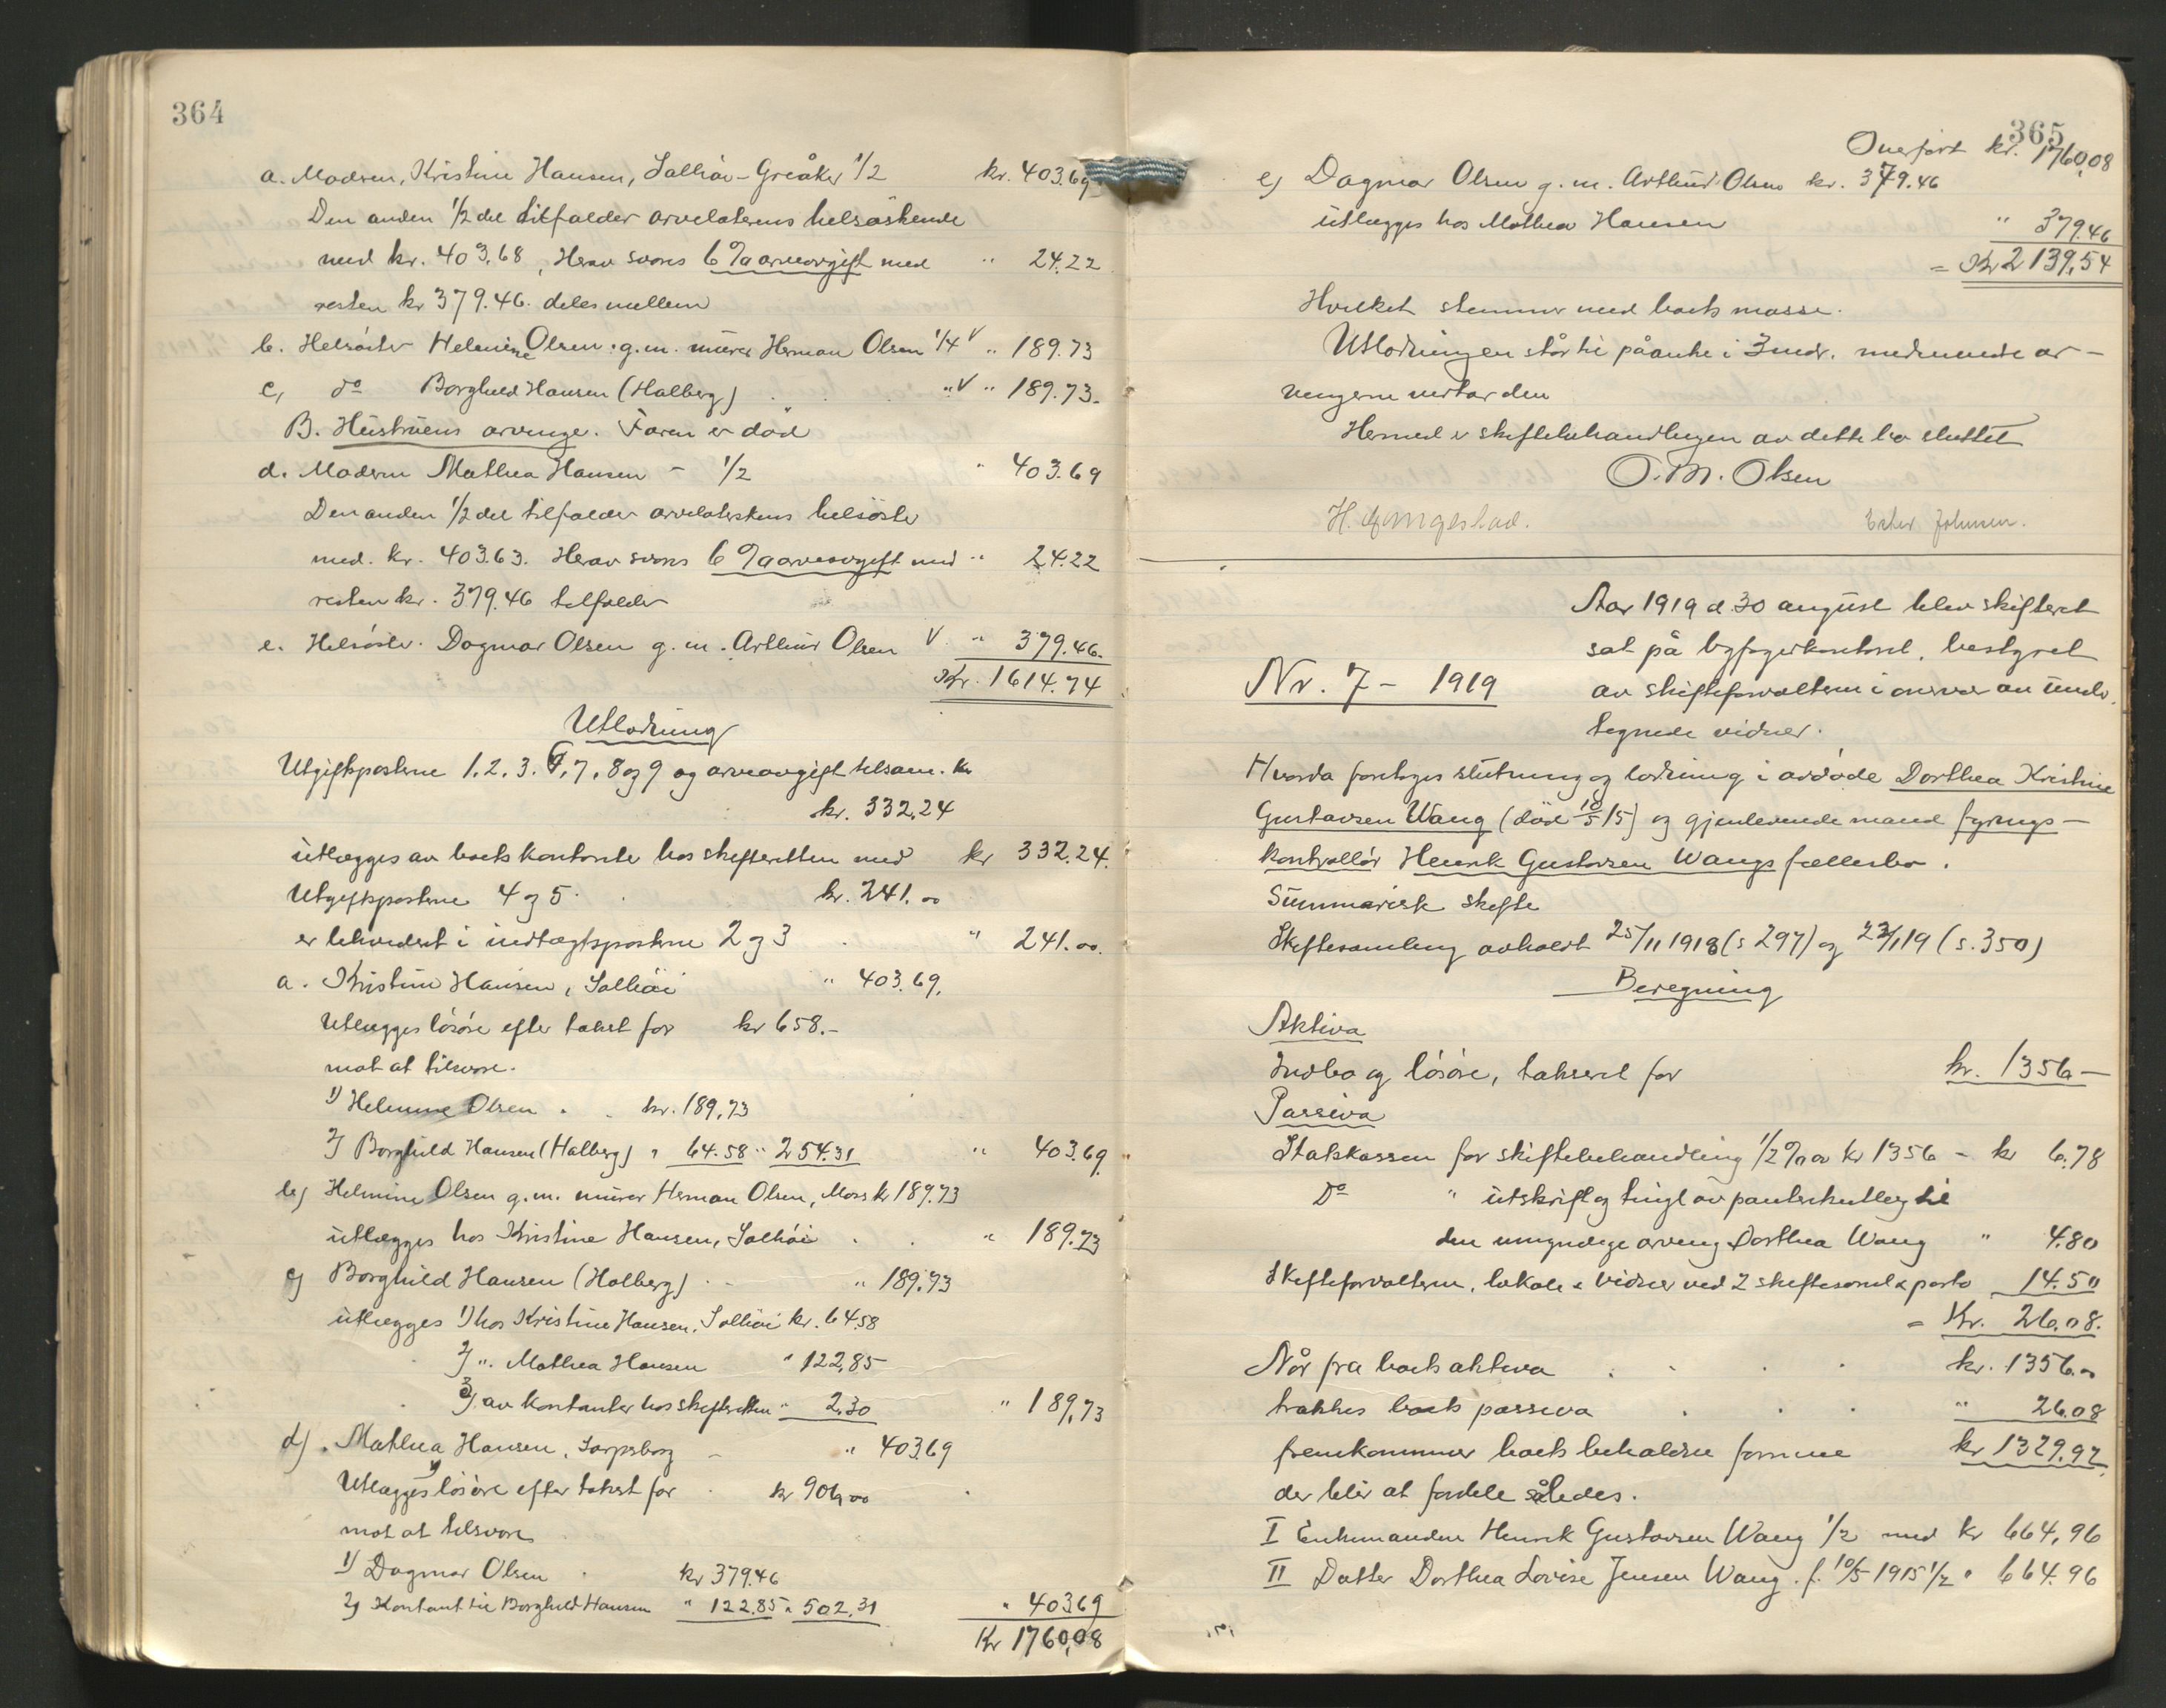 364
a. Modren, Kristine Hansen, Solhøi - Greåker 1/2 kr. 403.69
Den anden 1/2 del tilfalder arvelaterens helsøskende
med kr. 403.68, Herav svares 6 % arveavgift med " 24.22
resten kr 379.46. deles mellem
b. Helsøster Helmine Olsen g.m. murer Herman Olsen 1/4 V " 189.73
c, do Borghild Hansen (Halberg) " V " 189.73.
B. Hustruens arvinge. Faren er død
d. Modern Mathea Hansen - 1/2 " 403.69
Den anden 1/2 del tilfalder arvelaterskens helsøster
med. kr. 403.63. Herav svares 6 % arveavgift med " 24.22
resten kr. 379.46 tilfalder
e. Helsøster. Dagmar Olsen g. m. Arthur Olsen V " 379.46.
Kr. 1614.74
Utlodning
Utgiftsposterne 1. 2. 3. 6, 7, 8 og 9 og arveavgift tilsam. kr
kr. 332.24
utlægges av boets kontanter hos skifteretten med kr 332.24.
Utgiftsposterne 4 og 5. kr. 241.00
er likvidert i indtægtsposterne 2 og 3 " 241.00.
a. Kristine Hansen, Solhøi " 403.69.
Utlægges løsøre efter takst for kr 658.-
mot at tilsvare.
1) Helmine Olsen . . kr. 189,73
2) Borghild Hansen (Halberg) " 64.58 " 254.31 " 403.69
b) Helmine Olsen g.m. murer Herman Olsen, Moss kr 189.73
utlægges hos Kristine Hansen, Solhøi . . " 189.73
c) Borghild Hansen (Halberg) . - " 189.73
utlægges 1) hos Kristine Hansen, Solhøi kr. 64.58
2) " Mathea Hansen " 122,85
3) av kontanter hos skifteretten " 2.30 " 189,73
d) Mathea Hansen, Sarpsborg - " 403.69
Utlægges 1) løsøre efter takst for kr 906,00
mot at tilsvare
1) Dagmar Olsen . kr 379.46
2) Kontant til Borghild Hansen " 122.85 " 502,31 " 403.69
Kr 1760,08
365
Overført kr. 1760,08
e) Dagmar Olsen g. m. Arthur Olsen kr. 379.46
utlægges hos Mathea Hansen " 379.46
= Kr 2139,54
Hvilket stemmer med boets masse.
Utlodningen står til påanke i 3 mdr. medmindre ar-
vingerne vedtar den
Hermed er skiftebehandlingen av dette bo sluttet
O. M. Olsen
Ester Johnsen.
Aar 1919 d 30 august blev skifteret
sat på byfogedkontoret, bestyret
Nr. 7 - 1919 av skifteforvalteren i overvær av under-
tegnede vidner.
Hvorda foretoges slutning og lodning i avdøde Dorthea Kristine
Gustavsen Wang (død 10/5 15) og gjenlevende mand fyrings-
kontrollør Henrik Gustavsen Wangs fællesbo.
Summarisk skifte
Skiftesamling avholdt 25/11 1918 (s 297) og 23/1 19 (s. 350)
Beregning
Aktiva
Indbo og løsøre, taksert for kr. 1356 -
Passiva
Statskassen for skiftebehandling 1/2 % av kr 1356 - kr 6.78
Do " utskrift og tingl av panteutlæg til
den umyndige arving Dorthea Wang " 4.80
Skifteforvalteren, lokale & vidner ved 2 skiftesaml & porto 14.50
= Kr. 26.08.
Når fra boets aktiva . . . kr. 1356.00
trækkes boets passiva . . . " 26.08
fremkommer boets beholdne formue kr 1329.92
der blir at fordele således.
I Enkemanden Henrik Gustavsen Wang 1/2 med kr 664,96
II Datter Dorthea Lovise Jensen Wang. f. 10/5 1915 1/2 " 664.96